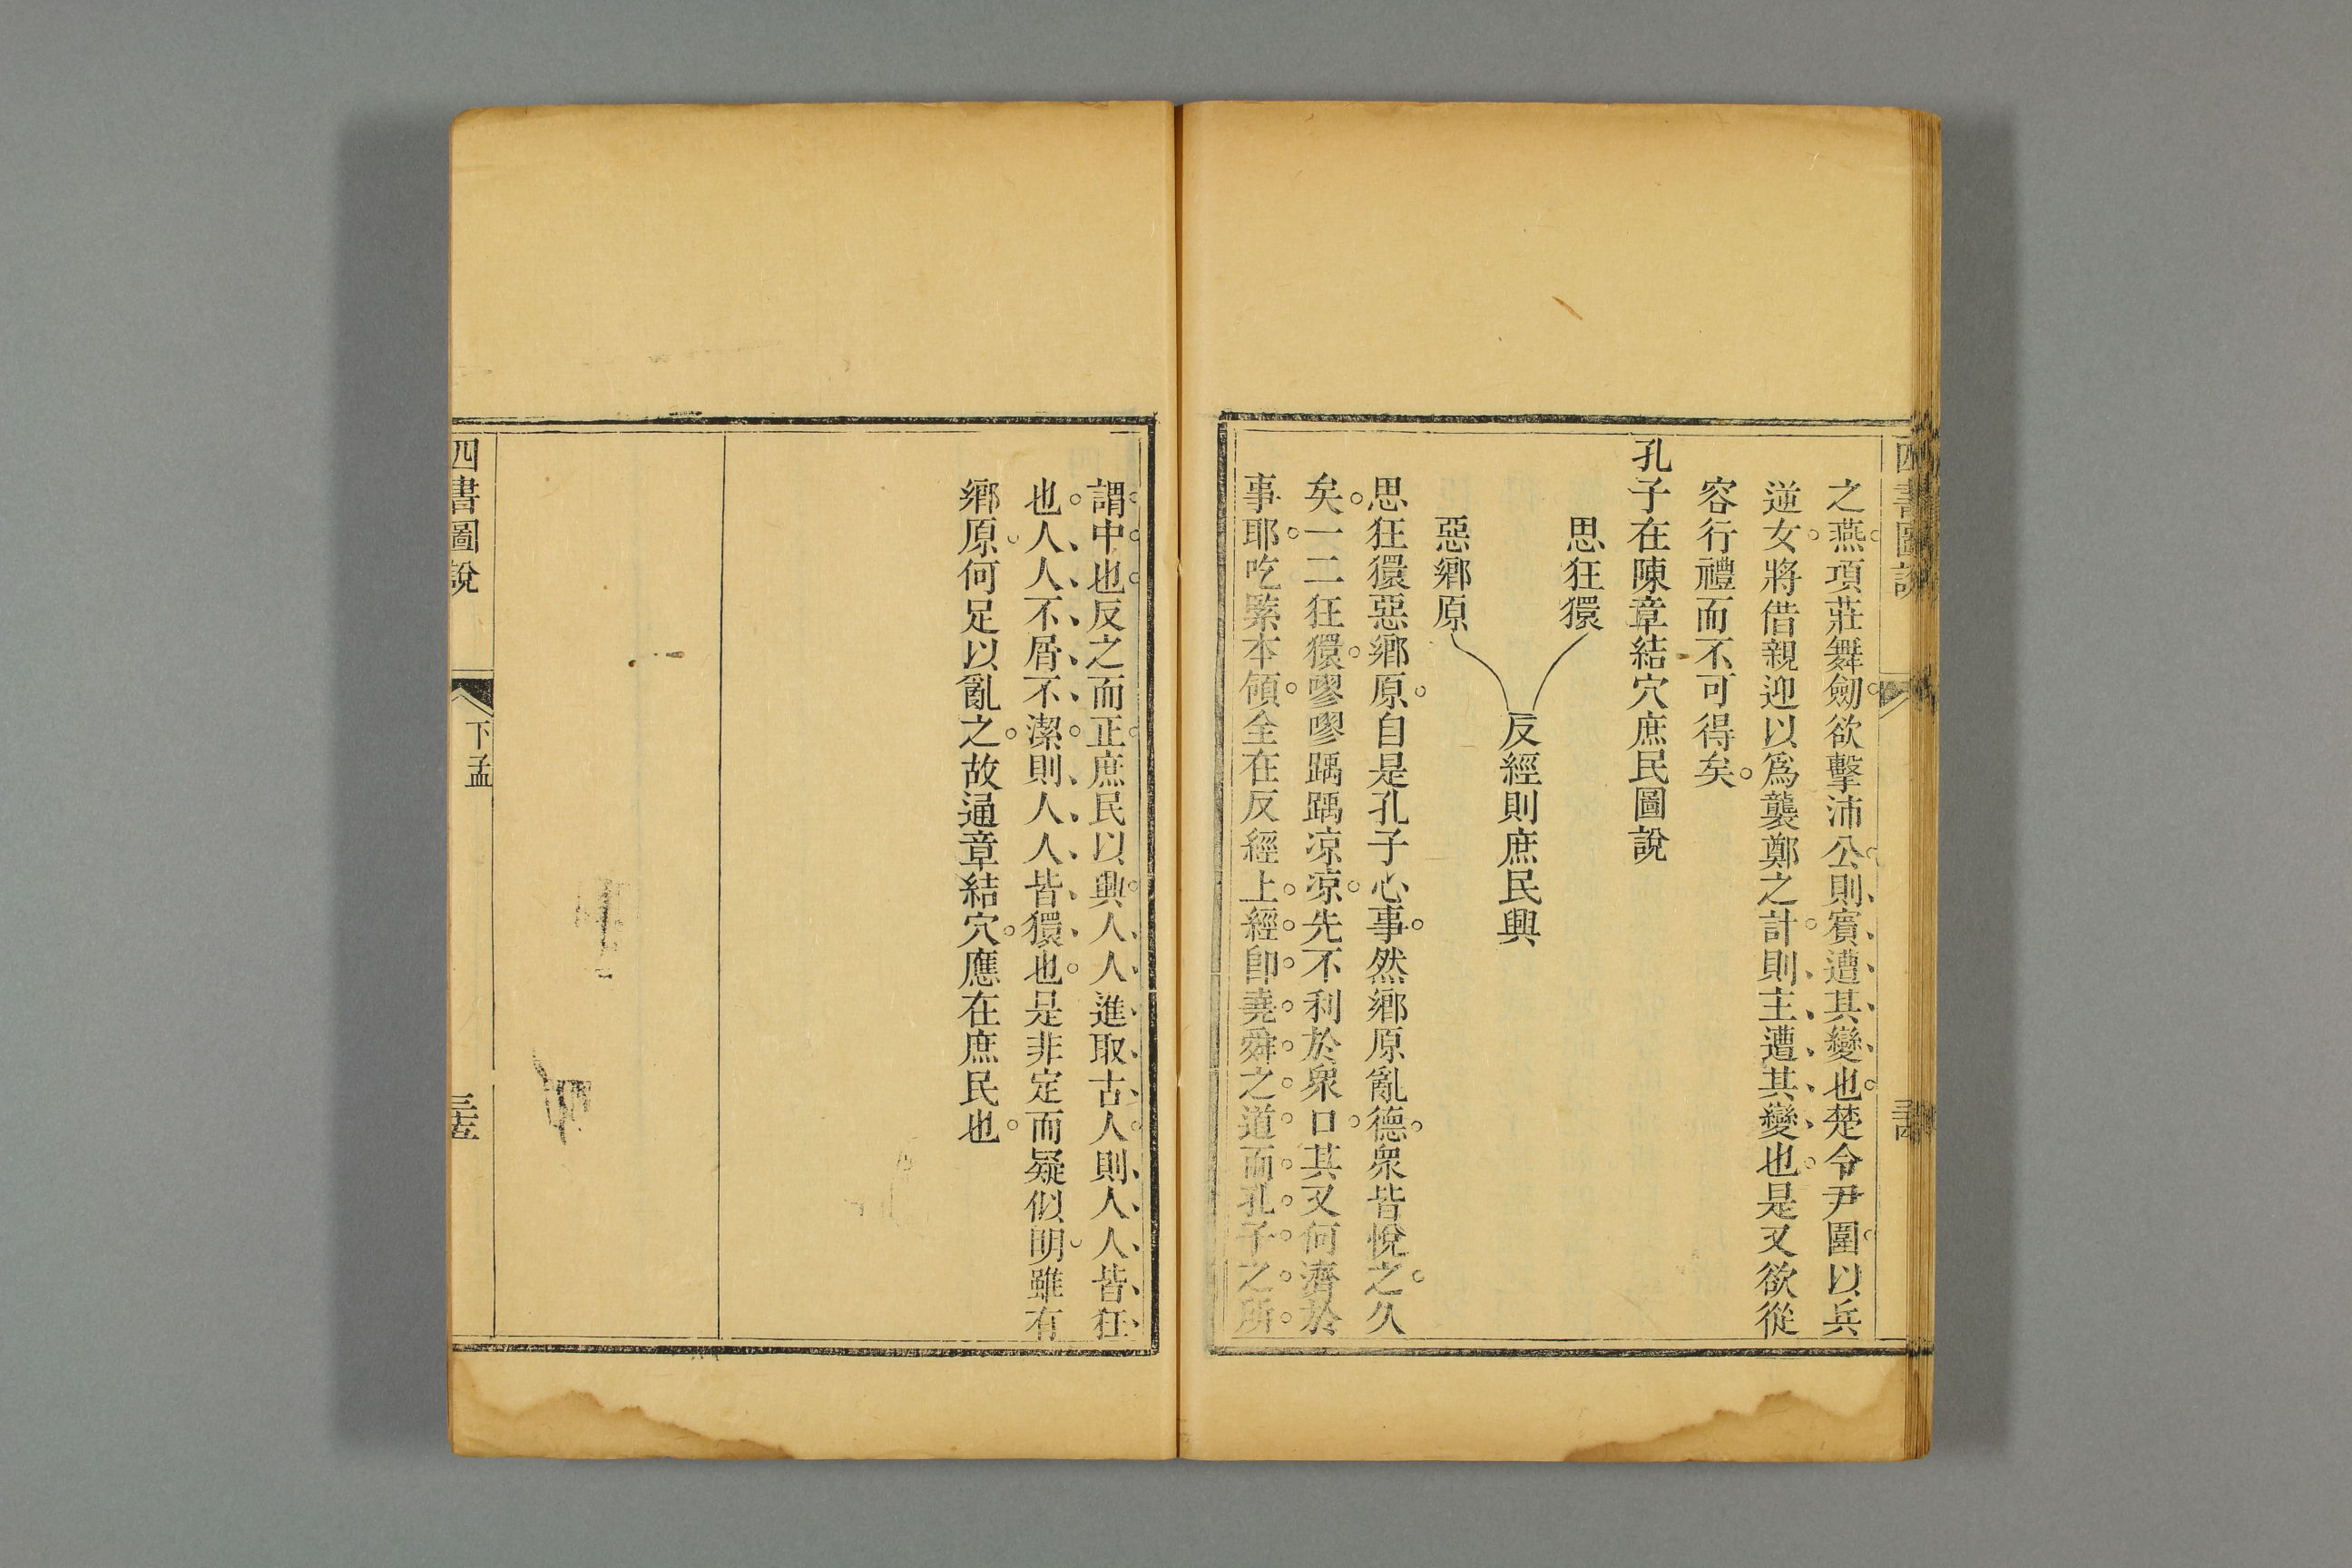 四書圖說
之燕項莊舞劒欲擊沛公則賓遭其變也楚令尹圍以兵
逆女將借親迎以爲襲鄭之計則主遭其變也是又欲從
容行禮而不可得矣
孔子在陳章結穴庶民圖說
思狂獧
反經則庶民興
惡鄉原
思狂獧惡鄉原自是孔子心事然鄉原亂德衆皆悅之久
矣一二狂獧嘐嘐踽踽凉凉先不利於衆口其又何濟於
事耶吃緊本領全在反經上經卽堯舜之道而孔子之所
謂中也反之而正庶民以興人人進取古人則人人皆狂
也人人不屑不潔則人人皆獧也是非定而疑似明雖有
鄉原何足以亂之故通章結穴應在庶民也
四書圖說
下孟